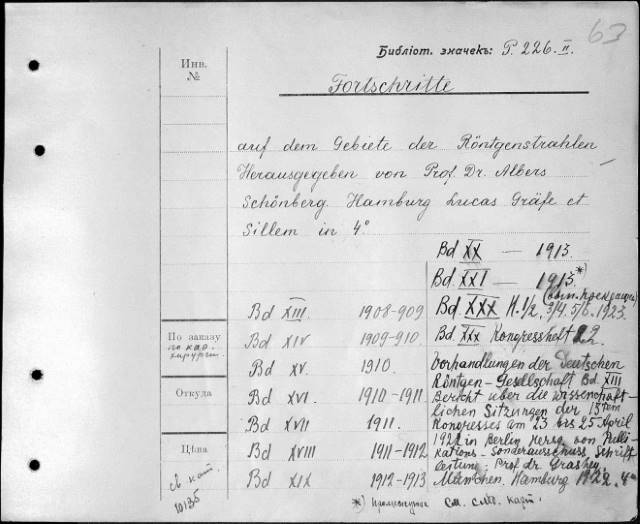 63
Библіот. значекъ: P. 226. II.
Инв.
№
Fortschritte
auf dem Gebiete der Röntgenstrahlen
Herausgegeben von Prof. Dr. Albers
Schönberg. Hamburg Lucas Gräfe et
Sillem in 4°
Bd XX — 1913.
Bd. XXI — 1913.*)
Bd XIII. 1908-909
Bd XXX H. 1/2, 3/4. 5/6. 1923.
Bd XIV 1909-910.
Bd. XXX Kongressheft 22
По заказу
по каѳ.
хирургіи.
Bd XV. 1910.
Verhandlungen der Deutschen
Röntgen-Gesellschaft Bd. XIII
Откуда
Bd XVI. 1910-1911
Bericht über die wissenschaft-
lichen Sitzungen der 13tem
Bd XVII 1911.
Kongresses am 23 bis 25 April
1922 in Berlin herg. von Publi
Цѣна
Bd XVIII 1911-1912
kations-Sonderausschuss Schrift
leitung: Prof. dr. Grashey.
Bd XIX 1912-1913
München. Hamburg 1922. 4°
*) См. слѣд. карт.